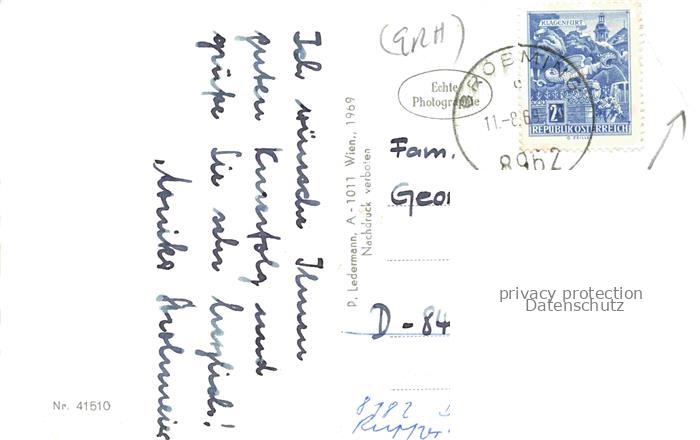 Ich wünsche Ihnen
guten Kurerfolg, und
grüße Sie sehr herzlich!
Monika
Nr. 41510
P. Ledermann, A-1011 Wien., 1969
Nachdruck verboten
(GRH)
Echte
Photographie
KLAGENFURT
2S
REPUBLIK ÖSTERREICH
GRÖBMING
11.-8.69
8962
Fam.
Geor
D-84
privacy protection
Datenschutz